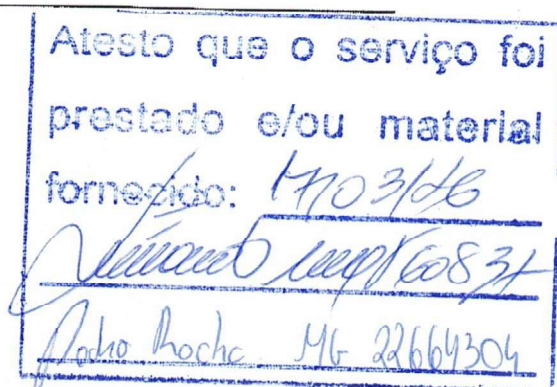 Atesto que o serviço foi
prestado e/ou material
fornecido: 17/03/26
60837
Pedro Rocha MG 22664304